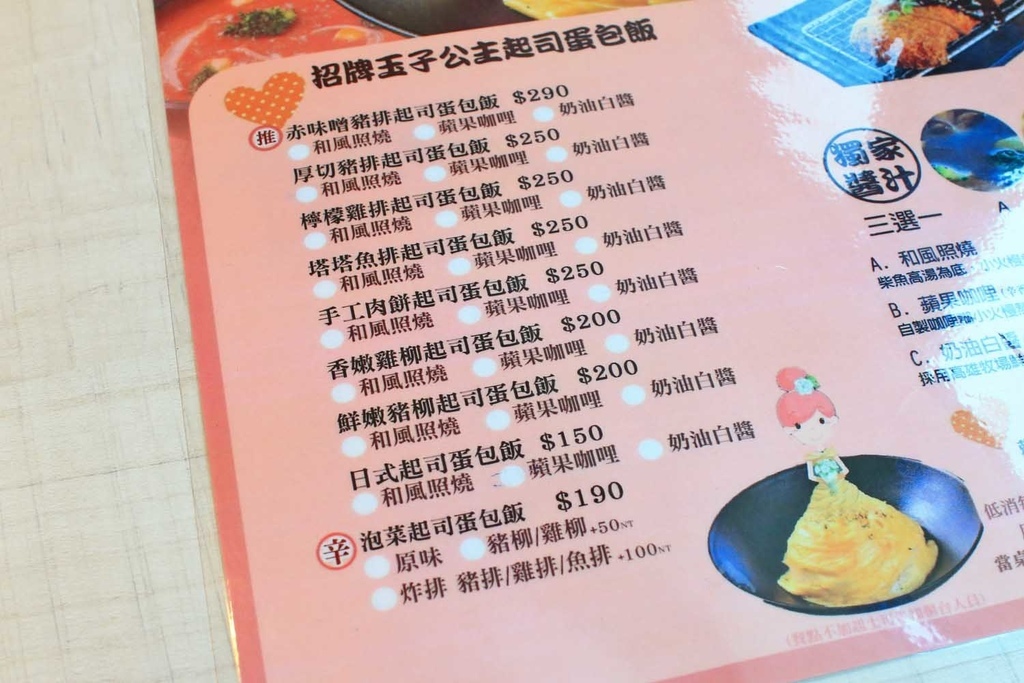 招牌玉子公主起司蛋包飯
推 赤味噌豬排起司蛋包飯 $290
和風照燒 蘋果咖哩 奶油白醬
厚切豬排起司蛋包飯 $250
和風照燒 蘋果咖哩 奶油白醬
檸檬雞排起司蛋包飯 $250
和風照燒 蘋果咖哩 奶油白醬
塔塔魚排起司蛋包飯 $250
和風照燒 蘋果咖哩 奶油白醬
手工肉餅起司蛋包飯 $250
和風照燒 蘋果咖哩 奶油白醬
香嫩雞柳起司蛋包飯 $200
和風照燒 蘋果咖哩 奶油白醬
鮮嫩豬柳起司蛋包飯 $200
和風照燒 蘋果咖哩 奶油白醬
日式起司蛋包飯 $150
和風照燒 蘋果咖哩 奶油白醬
辛 泡菜起司蛋包飯 $190
原味 豬柳/雞柳+50NT
炸排 豬排/雞排/魚排+100NT
獨家
醬汁
三選一
A
A. 和風照燒
柴魚高湯為底
B. 蘋果咖哩
自製咖哩
C. 奶油白醬
採用高雄牧場
低消
當